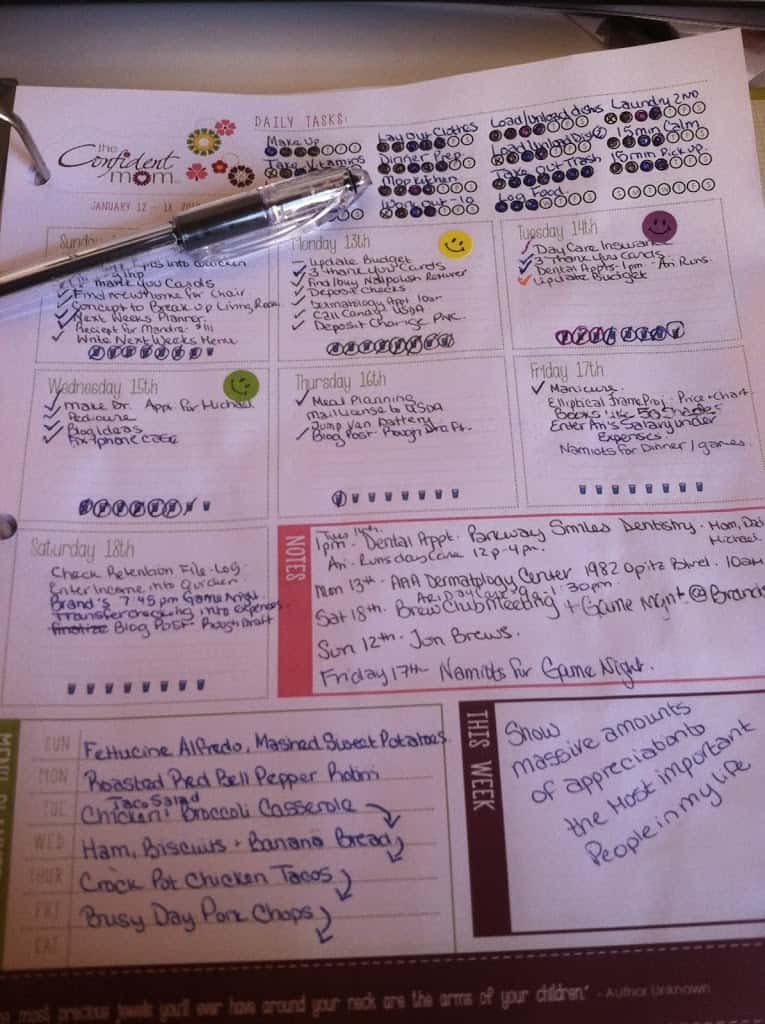 the
Confident
mom
DAILY TASKS:
Make Up
Take Vitamins
Lay out Clothes
Dinner Prep
Mop Kitchen
Work out - 10
Load/unload dishes
Load/unload Dish 2
Take out Trash
Log Food
Laundry 2ND
15 min Calm
15 min Pick up
S M T W T F S
JANUARY 12 - 18
into Quicken
Thank you Cards
Find new home for Chair
Concept to Break Up Living Room
Next Weeks Planner
Reciept for Mandra $111
Write Next Weeks Menu
Monday 13th
update Budget
3 Thank you Cards
Find/buy Nailpolish
Deposit Checks
Dermatology Appt 10am
Call Candy USDA
Deposit Change PNC
Tuesday 14th
Day Care Insurance
3 Thank you Cards
Dental Appts - 1pm - Ari Runs
Update Budget
Wednesday 15th
Make Dr. Appt For Michael
Pedicure
Blog Ideas
Fix iphone case
Thursday 16th
Meal Planning
mail License to USDA
Jump Van Battery
Blog Post - Rough Draft
Friday 17th
Manicure
Elliptical Frame Proj. Price + Chart
Books Like 50 Shades
Enter Ari's Salary under
Expenses
Namiots for Dinner/games
Saturday 18th
Check Retention File - Log
Enter Income into Quicken
Brand's 7:45pm Game Night
Transfer checking into expenses
finalize Blog Post - Rough Draft
NOTES
Tues 14th
1pm - Dental Appt. Parkway Smiles Dentistry - Mom, Dad
Michael
Ari Runs daycare 12p-4pm.
Mon 13th - AAA Dermatology Center 1982 Opitz Blvd. 10am
Ari Day Care 9 - 1:30pm.
Sat 18th. Brew Club Meeting + Game Night @ Brands
Sun 12th - Jon Brews.
Friday 17th Namiots for Game Night.
SUN Fettucine Alfredo, Mashed Sweet Potatoes
MON Roasted Red Bell Pepper
Taco Salad
TUE Chicken Broccoli Casserole
WED Ham, Biscuits + Banana Bread
THUR Crock Pot Chicken Tacos
FRI Busy Day Pork Chops
SAT
THIS WEEK
Show
massive amounts
of appreciation to
the Most important
People in my life
most precious jewels you'll ever have around your neck are the arms of your children." - Author Unknown